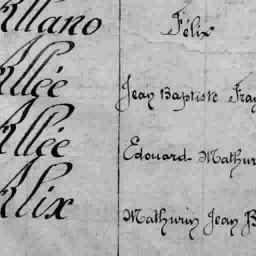 Allano Félix
Allée Jean Baptiste Fra
Allée Edouard Mathur
Alix Mathurin Jean B